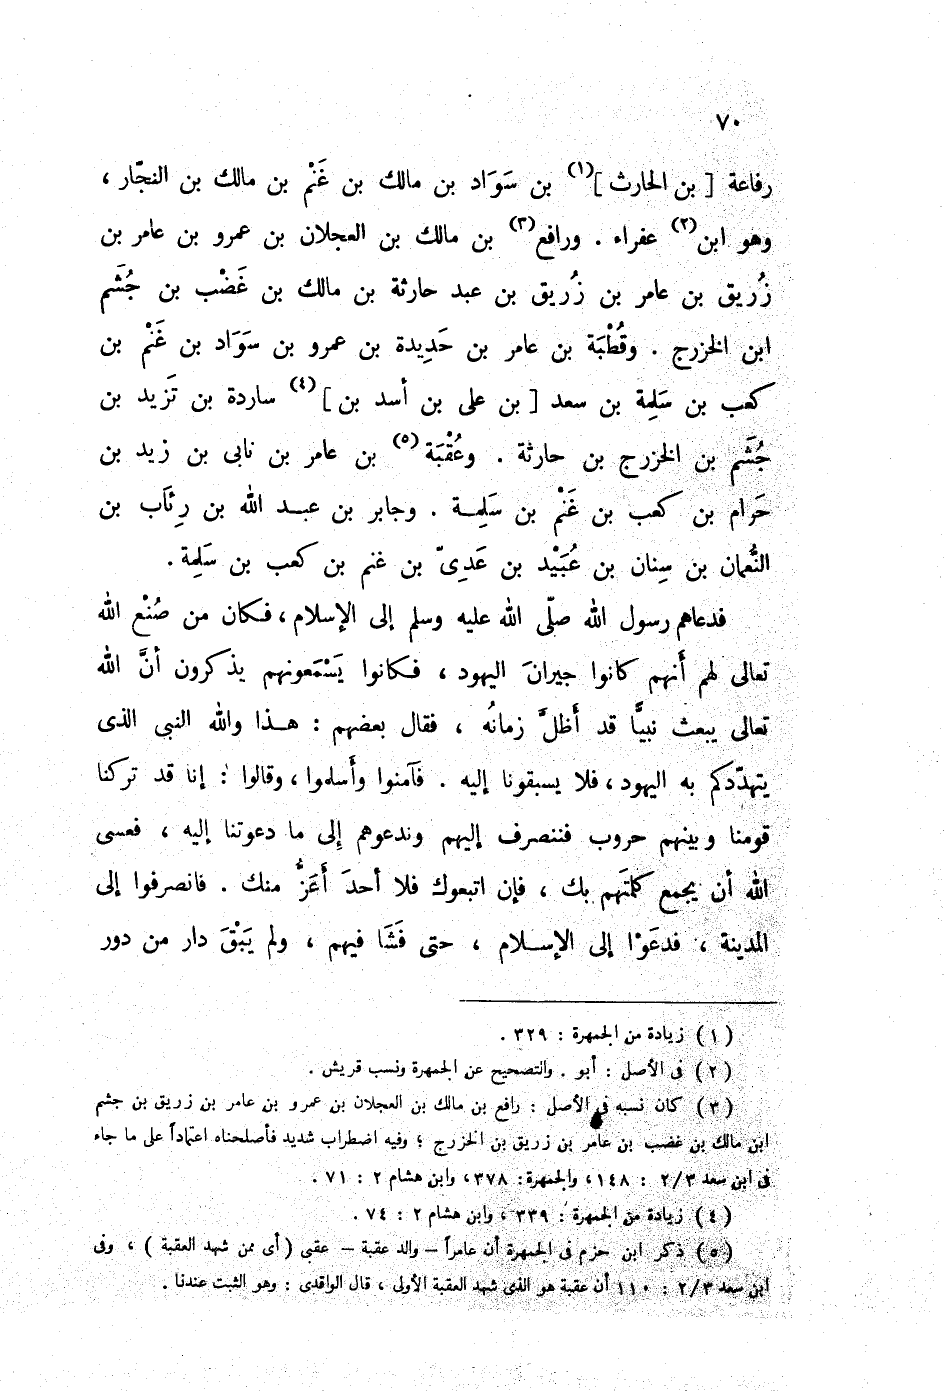 ٧٠
رفاعة [ بن الحارث ](١) بن سَوَاد بن مالك بن غَنْم بن مالك بن النجّار ،
وهو ابن(٢) عفراء . ورافع(٣) بن مالك بن العجلان بن عمرو بن عامر بن
زُريق بن عامر بن زُريق بن عبد حارثة بن مالك بن غَضْب بن جُشَم
ابن الخزرج . وقُطْبَة بن عامر بن حَدِيدة بن عمرو بن سَوَاد بن غَنْم بن
كعب بن سَلِمة بن سعد [ بن على بن أسد بن ](٤) ساردة بن تَزيد بن
جُشَم بن الخزرج بن حارثة . وعُقْبَة(٥) بن عامر بن نابى بن زيد بن
حَرام بن كعب بن غَنْم بن سَلِمـة . وجابر بن عبـد الله بن رِئَاب بن
النُّعمان بن سِنان بن عُبَيْد بن عَدِىّ بن غنم بن كعب بن سَلِمة .
فدعاهم رسول الله صلّى الله عليه وسلم إلى الإسلام ، فكان من صُنْع الله
تعالى لهم أَنهم كانوا جيرانَ اليهود ، فكانوا يَسْمَعونهم يذكرون أنَّ الله
تعالى يبعث نبيًّا قد أَظلَّ زمانُه ، فقال بعضهم : هـذا والله النبى الذى
يتهدّدكم به اليهود ، فلا يسبقونا إليه . فآمنوا وأَسلموا ، وقالوا : إنا قد تركنا
قومنا وبينهم حروب فننصرف إليهم وندعوهم إِلى ما دعوتنا إليه ، فعسى
الله أن يجمع كلمتَهم بك ، فإن اتبعوك فلا أحدَ أَعَزُّ منك . فانصرفوا إلى
المدينة ، فدعَوْا إلى الإسـلام ، حتى فَشَا فيهم ، ولم يَبْقَ دار من دور
(١) زيادة من الجمهرة : ٣٢٩ .
(٢) فى الأصل : أبو . والتصحيح عن الجمهرة ونسب قريش .
(٣) كان نسبه فى الأصل : رافع بن مالك بن العجلان بن عمرو بن عامر بن زريق بن جشم
ابن مالك بن غضب بن عامر بن زريق بن الخزرج ؛ وفيه اضطراب شديد فأصلحناه اعتماداً على ما جاء
فى ابن سعد ٢/٣ : ١٤٨ ، والجمهرة : ٣٧٨ ، وابن هشام ٢ : ٧١ .
(٤) زيادة من الجمهرة : ٣٣٩ ، وابن هشام ٢ : ٧٤ .
(٥) ذكر ابن حزم فى الجمهرة أن عامراً – والد عقبة – عقبى ( أى ممن شهد العقبة ) ، وفى
ابن سعد ٢/٣ : ١١٠ أن عقبة هو الذى شهد العقبة الأولى ، قال الواقدى : وهو الثبت عندنا .